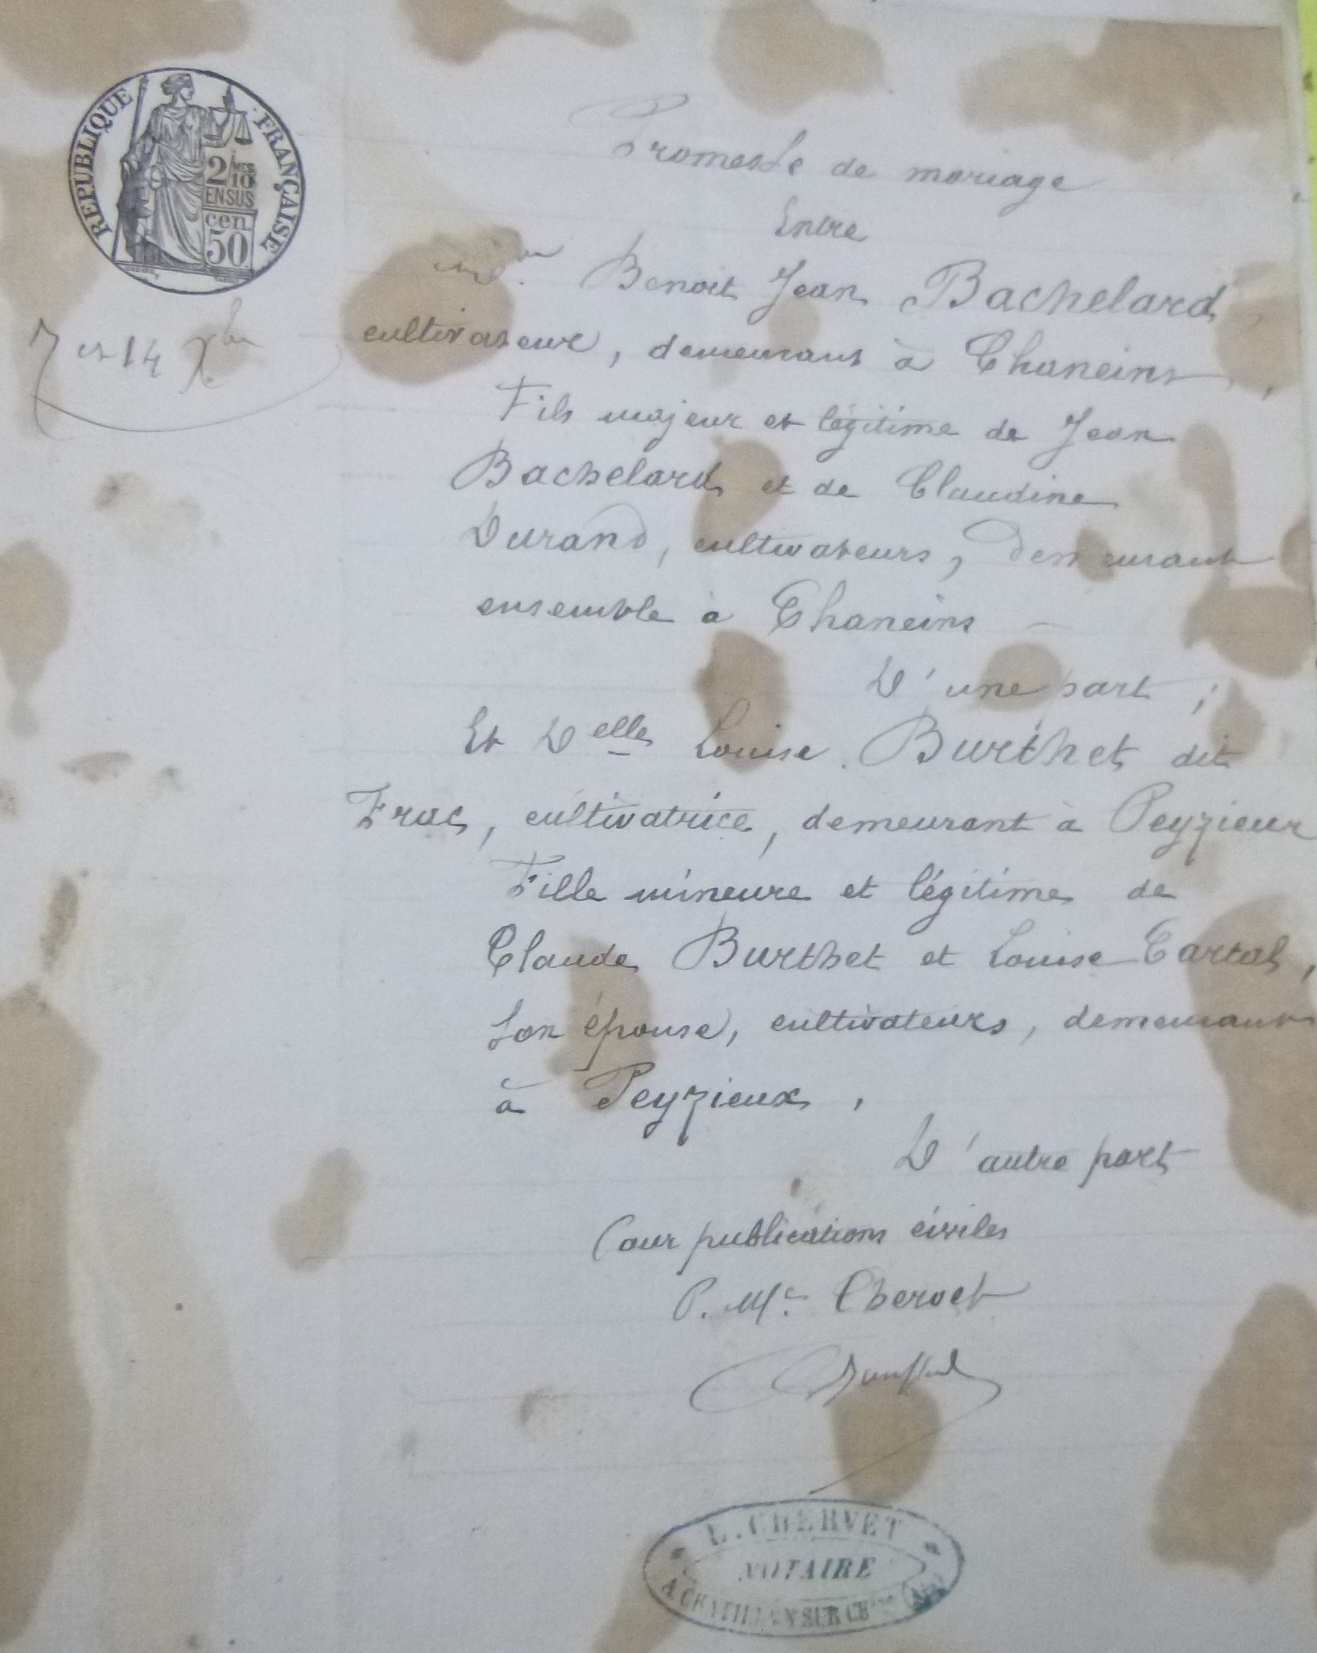 RÉPUBLIQUE FRANÇAISE
2/10
EN SUS
cen
50
7 et 14 Xbre
Promesse de mariage
Entre
Mr Benoit Jean Bachelard
cultivateur, demeurant à Chaneins,
Fils majeur et légitime de Jean
Bachelard et de Claudine
Durand, cultivateurs, demeurant
ensemble à Chaneins
D'une part ;
Et Delle Louise Burthet dit
Frac, cultivatrice, demeurant à Peyzieux
Fille mineure et légitime de
Claude Burthet et Louise Carral,
son épouse, cultivateurs, demeurant
à Peyzieux,
D'autre part
Pour publications civiles
P. Me Chervet
L. CHERVET
NOTAIRE
A CHATILLON SUR CHne (Ain)